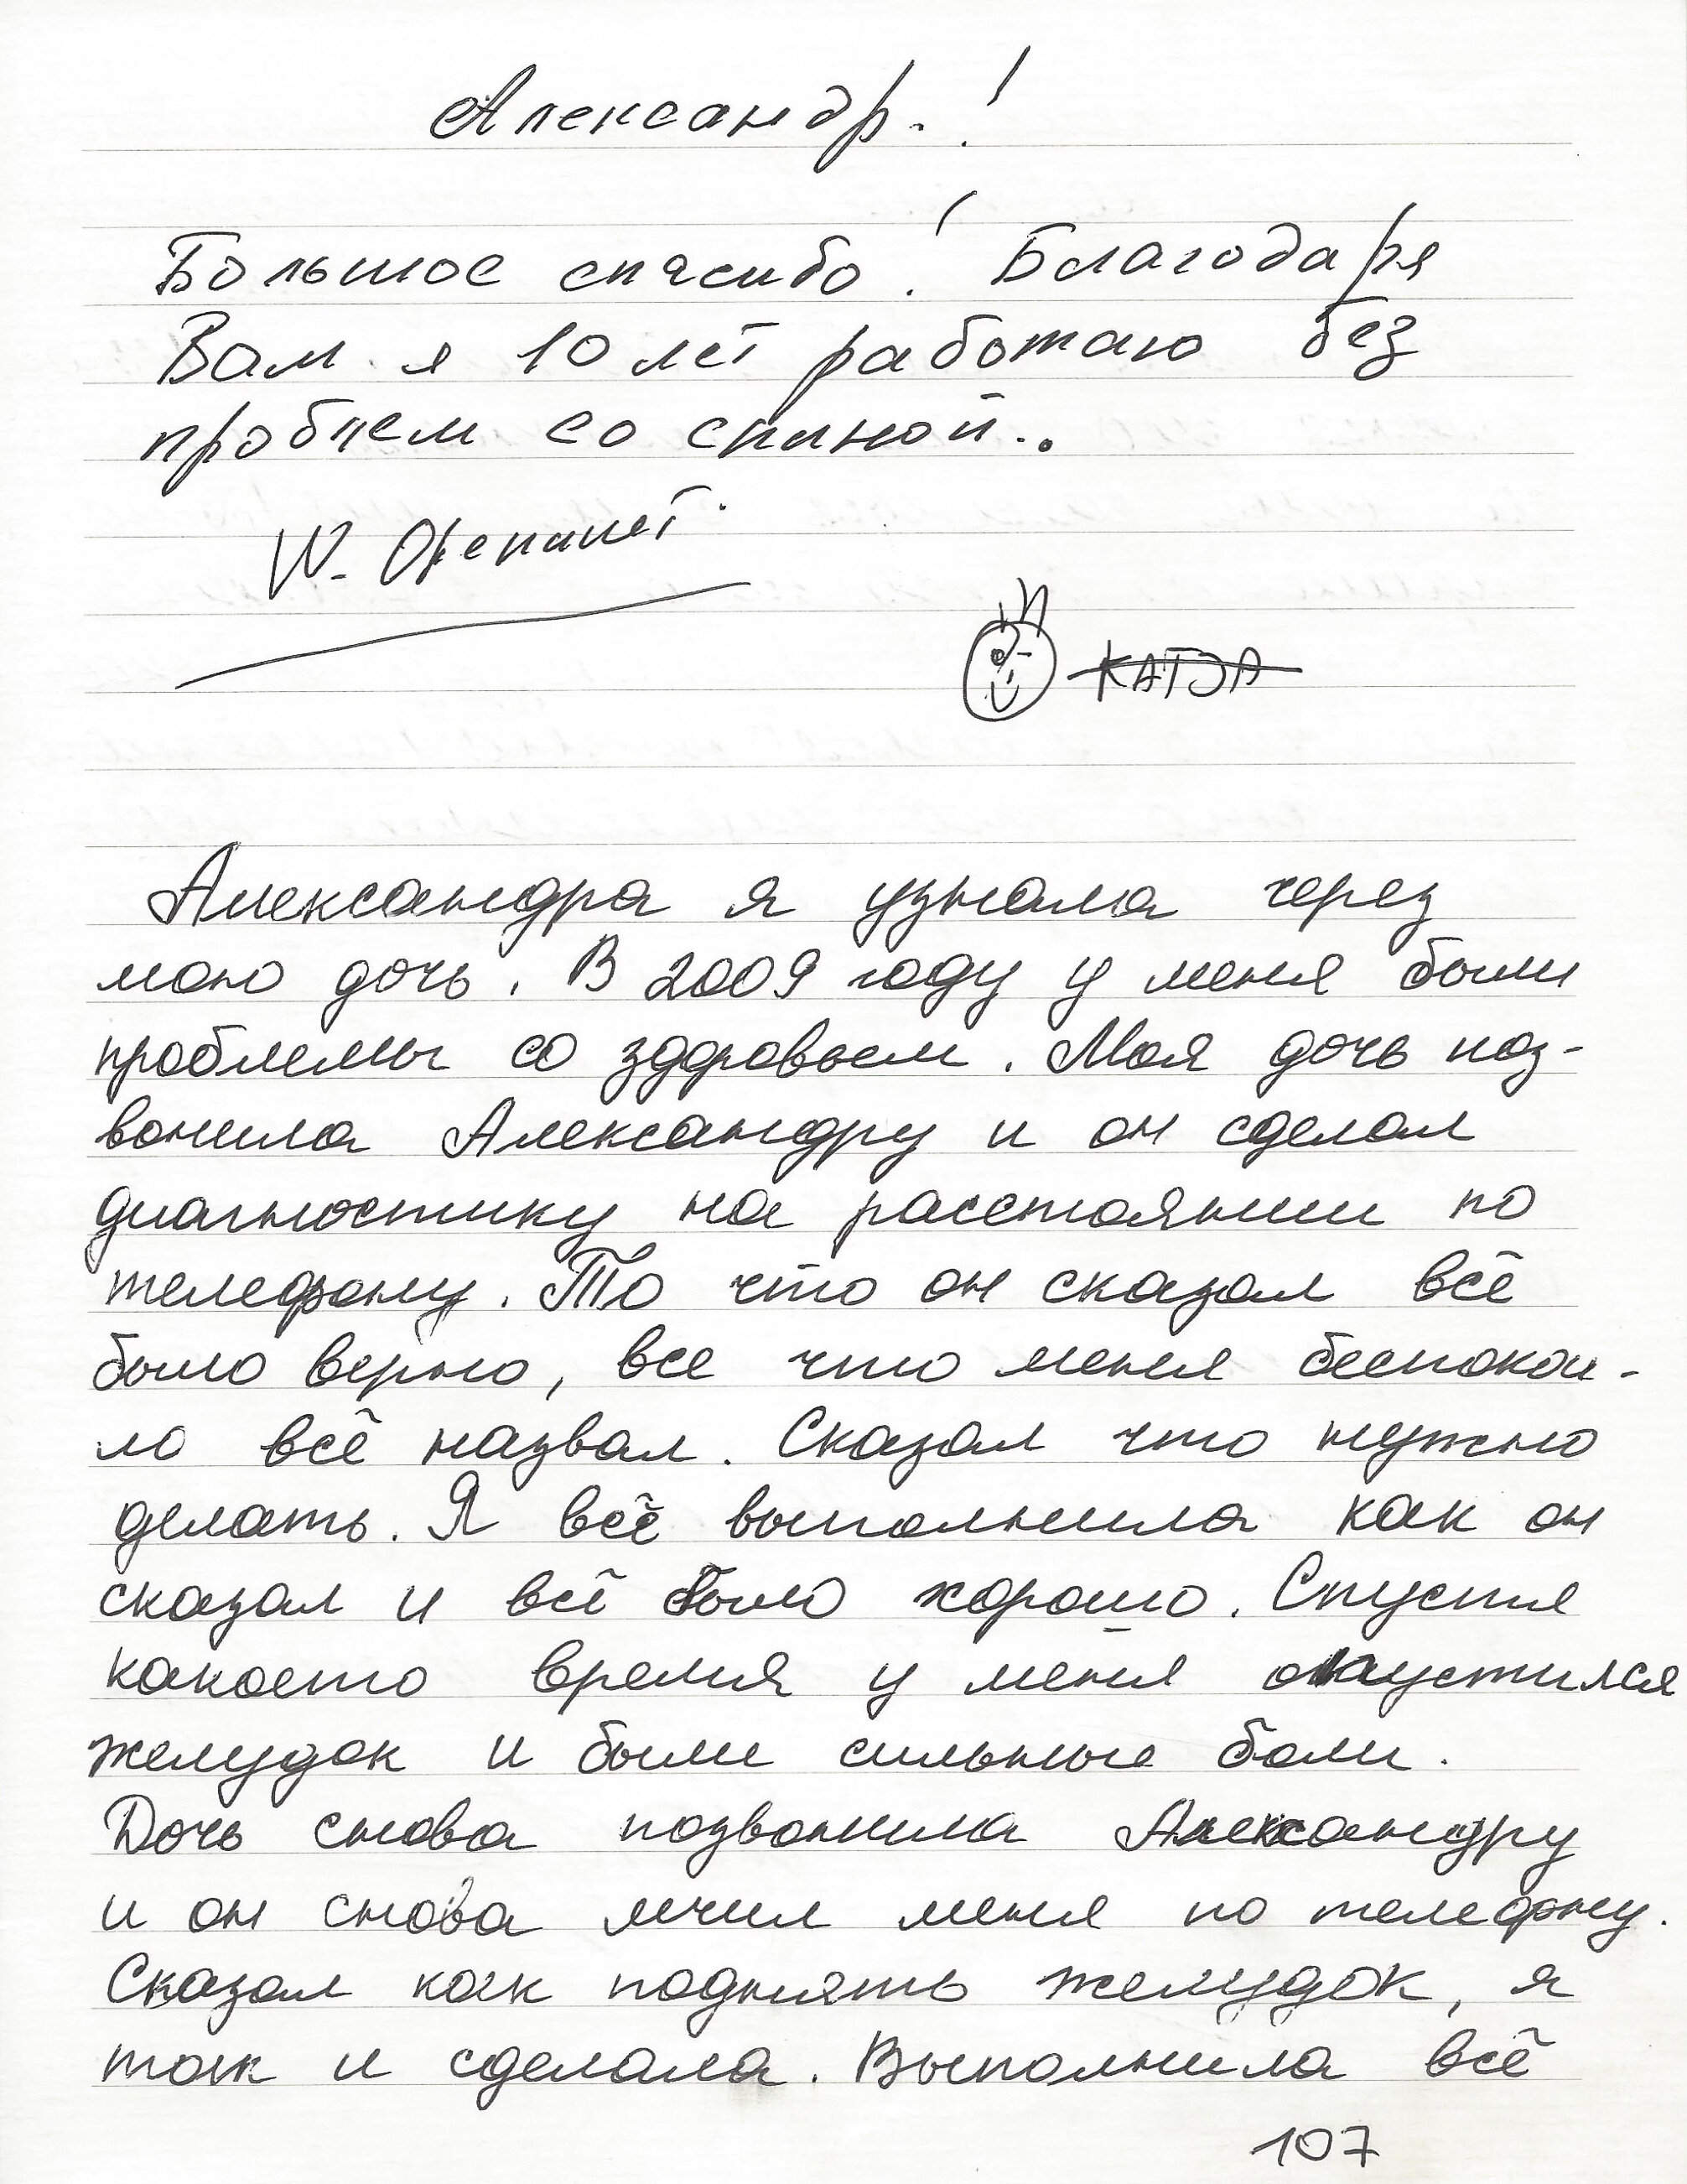 Александр.!
Большое спасибо! Благодаря
Вам я 10 лет работаю без
проблем со спиной..
W.
КАТЭА
Александра я узнала через
мою дочь. В 2009 году у меня были
проблемы со здоровьем. Моя дочь поз-
вонила Александру и он сделал
диагностику на расстоянии по
телефону. То что он сказал всё
было верно, все что меня беспокои-
ло всё назвал. Сказал что нужно
делать. Я всё выполнила как он
сказал и всё было хорошо. Спустя
какоето время у меня опустился
желудок и были сильные боли.
Дочь снова позвонила Александру
и он снова лечил меня по телефону.
Сказал как поднять желудок, я
так и сделала. Выполнила всё
107